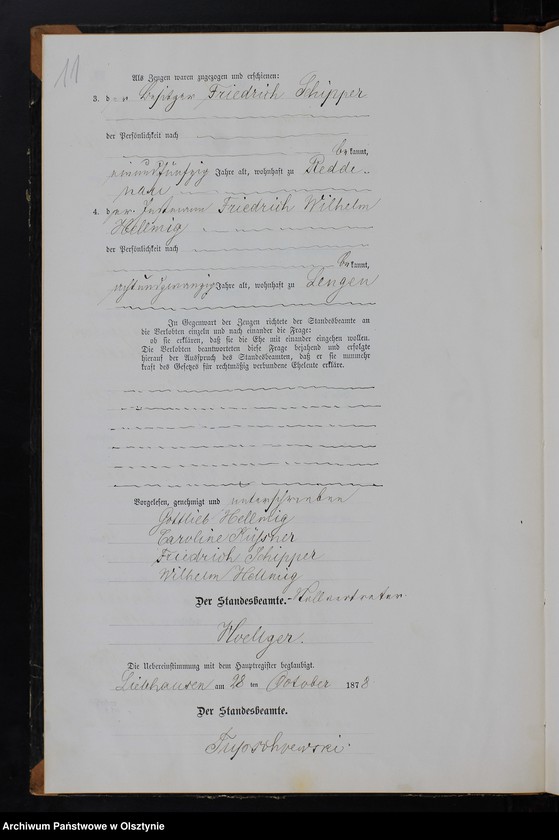 11
Als Zeugen waren zugezogen und erschienen:
3. der Besitzer Friedrich Schipper
der Persönlichkeit nach
bekannt,
einundfünfzig Jahre alt, wohnhaft zu Redde-
nau
4. der Instmann Friedrich Wilhelm
Hellmig
der Persönlichkeit nach
bekannt,
achtundzwanzig Jahre alt, wohnhaft zu Lengen
In Gegenwart der Zeugen richtete der Standesbeamte an
die Verlobten einzeln und nach einander die Frage:
ob sie erklären, daß sie die Ehe mit einander eingehen wollen.
Die Verlobten beantworteten diese Frage bejahend und erfolgte
hierauf der Ausspruch des Standesbeamten, daß er sie nunmehr
kraft des Gesetzes für rechtmäßig verbundene Eheleute erkläre.
Vorgelesen, genehmigt und unterschrieben
Gottlieb Hellmig
Caroline
Friedrich Schipper
Wilhelm Hellmig
Der Standesbeamte.-Stellvertreter.
Die Uebereinstimmung mit dem Hauptregister beglaubigt.
am 28 ten October 1878
Der Standesbeamte.
Archiwum Państwowe w Olsztynie